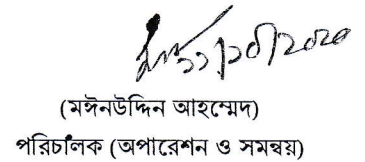 ১১/১০/২০২০
(মঈনউদ্দিন আহম্মেদ)
পরিচালক (অপারেশন ও সমন্বয়)